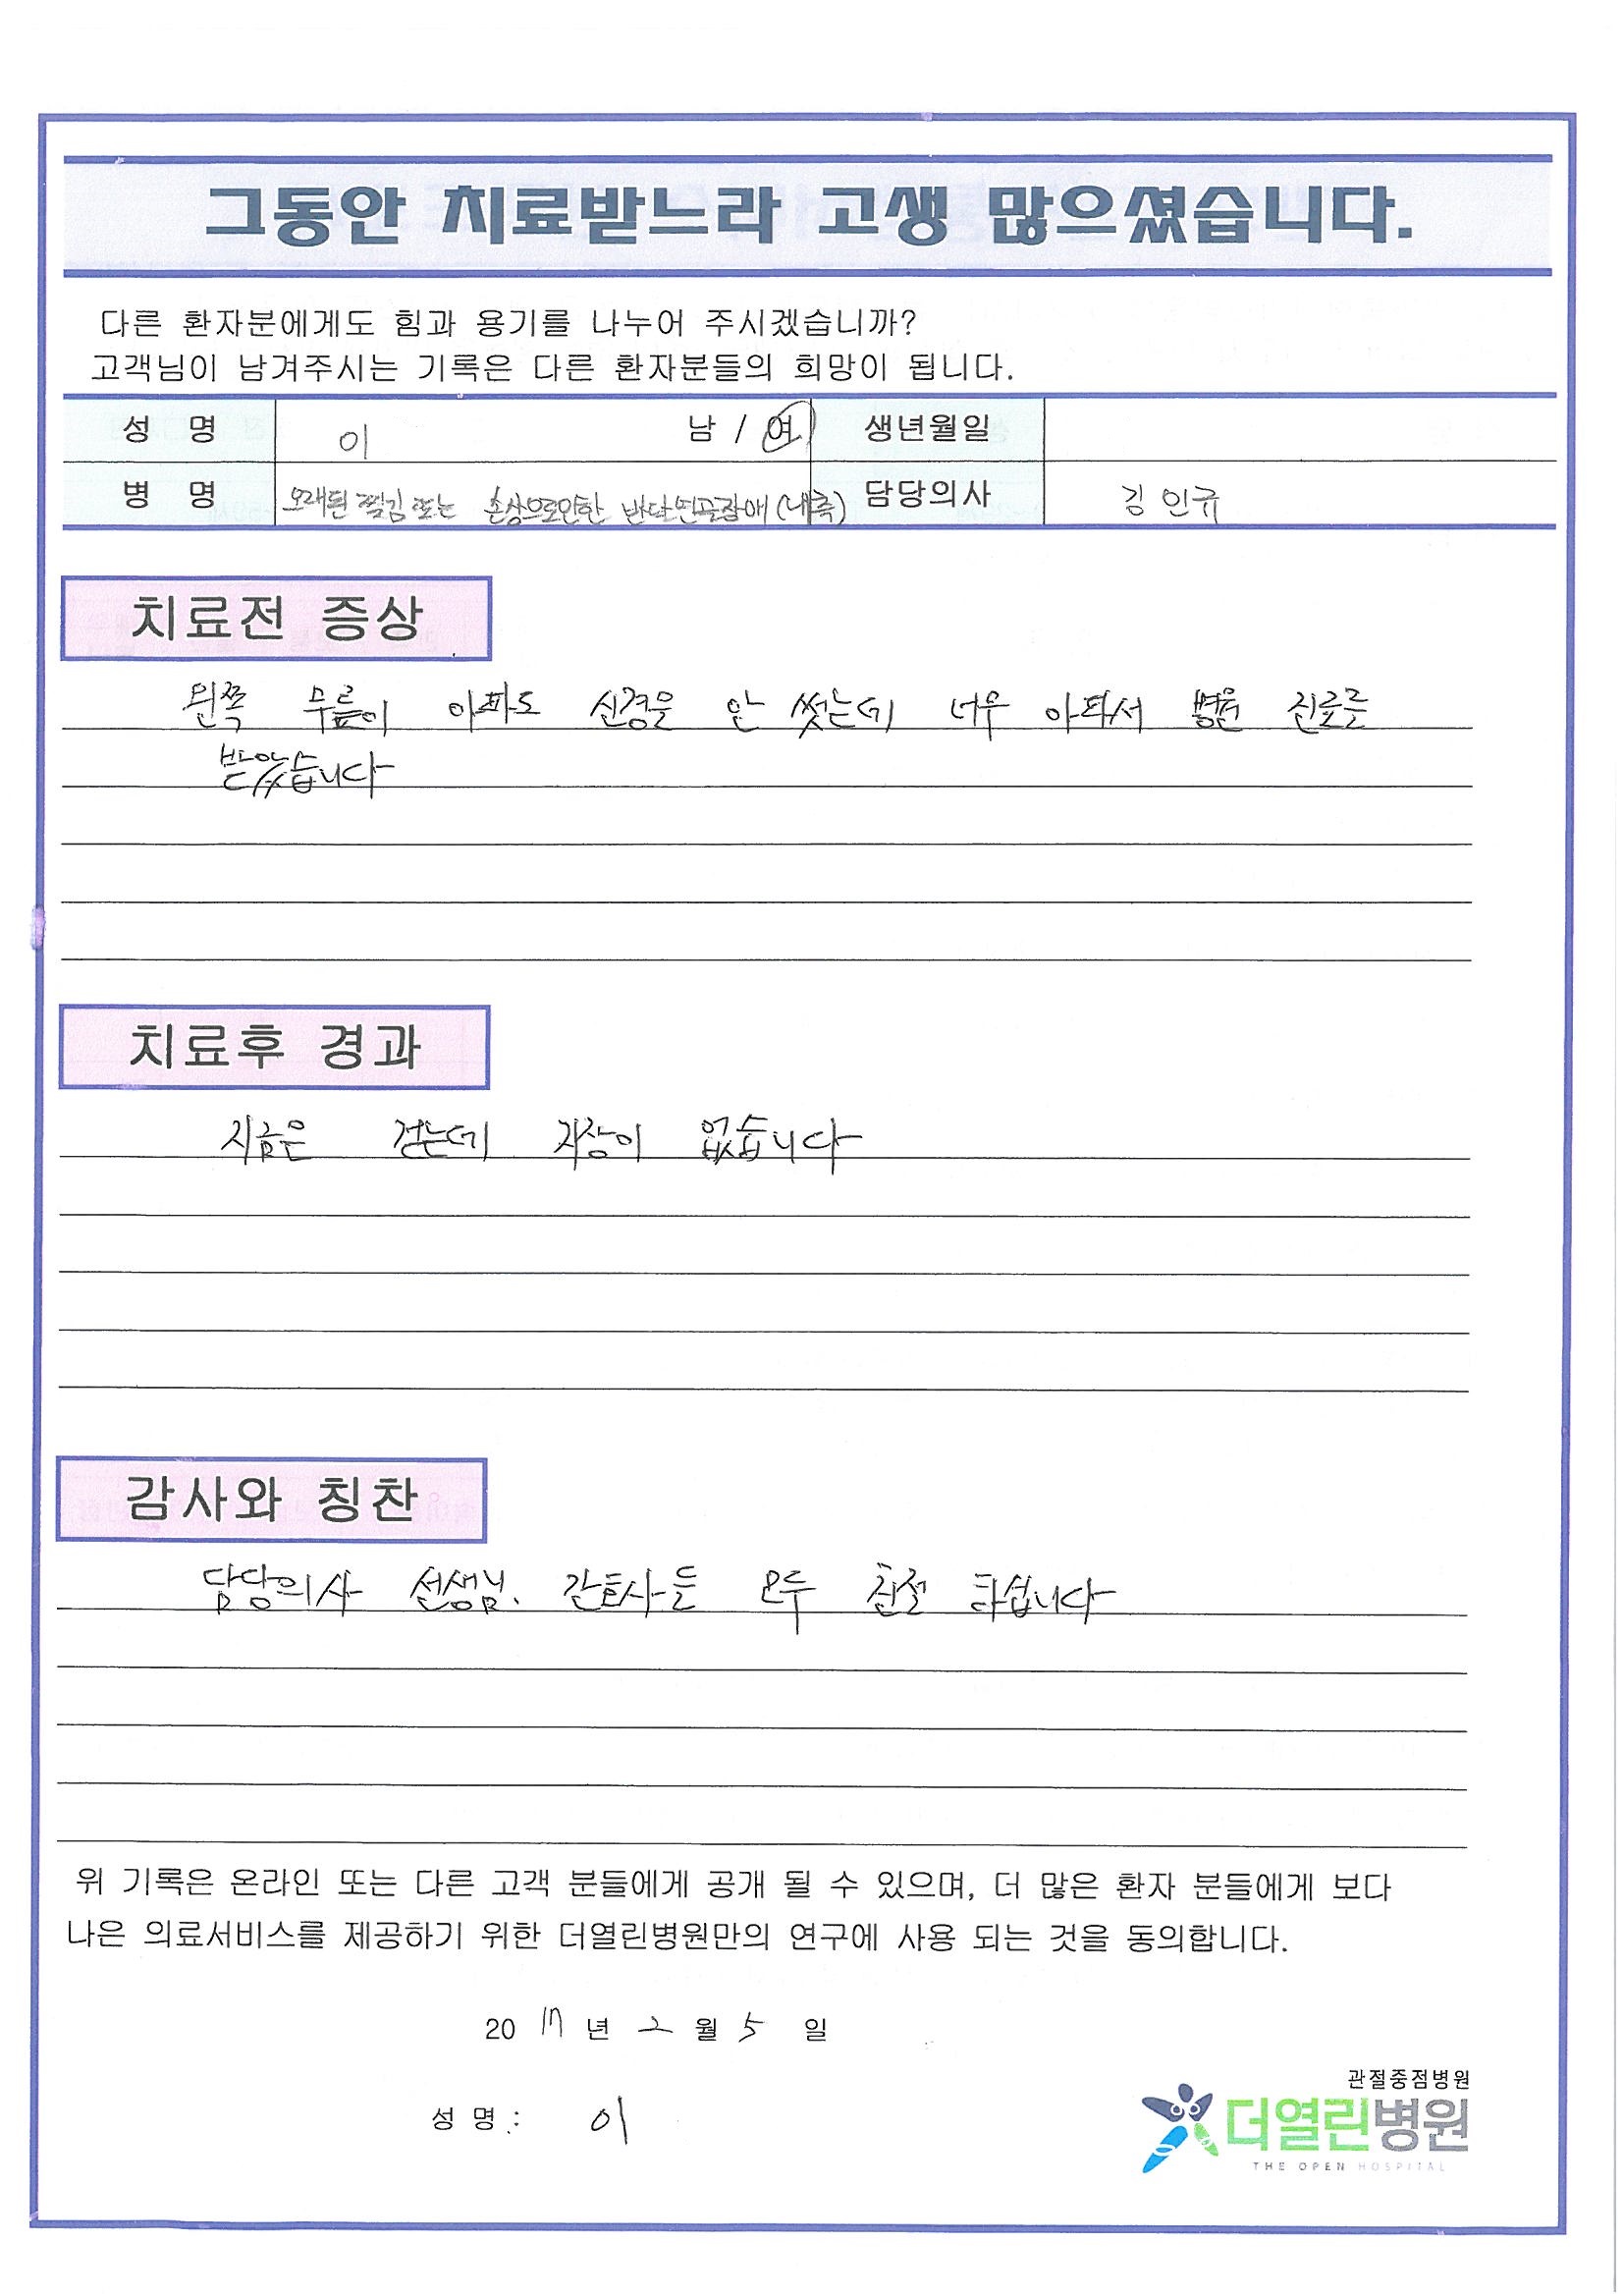 그동안 치료받느라 고생 많으셨습니다.
다른 환자분에게도 힘과 용기를 나누어 주시겠습니까?
고객님이 남겨주시는 기록은 다른 환자분들의 희망이 됩니다.
성 명 이 남 / 여 생년월일
병 명 오래된 찢김 또는 손상으로인한 반달연골장애(내측) 담당의사 김인규
치료전 증상
왼쪽 무릎이 아파도 신경을 안 썻는데 너무 아파서 병원 진료를
받았습니다
치료후 경과
지금은 걷는데 지장이 없습니다
감사와 칭찬
담당의사 선생님. 간호사들 모두 친절 하십니다
위 기록은 온라인 또는 다른 고객 분들에게 공개 될 수 있으며, 더 많은 환자 분들에게 보다
나은 의료서비스를 제공하기 위한 더열린병원만의 연구에 사용 되는 것을 동의합니다.
2017년 2월 5일
성 명 : 이
관절중점병원
더열린병원
THE OPEN HOSPITAL